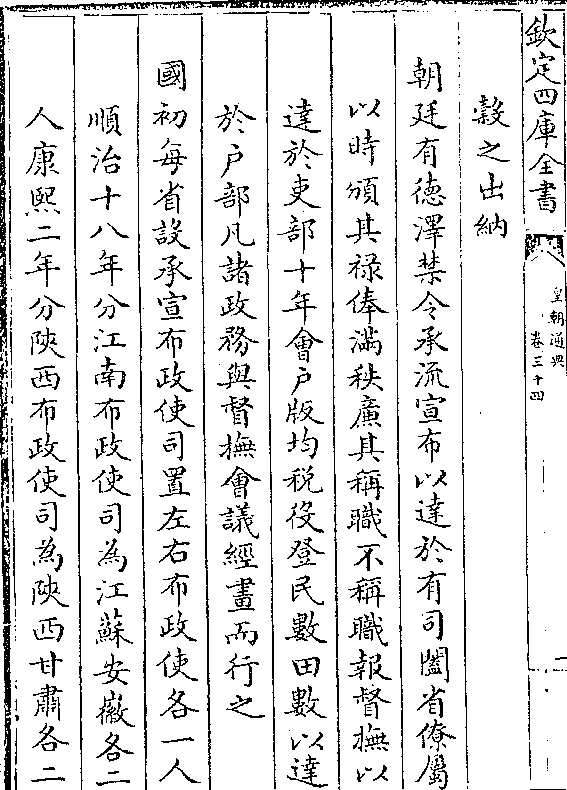 欽定四庫全書
皇朝通典
卷三十四
一
穀之出納
朝廷有德澤禁令承流宣布以達於有司闔省僚屬
以時頒其禄俸滿秩廉其稱職不稱職報督撫以
達於吏部十年會户版均税役登民數田數以達
於户部凡諸政務與督撫會議經畫而行之
國初每省設承宣布政使司置左右布政使各一人
順治十八年分江南布政使司為江蘇安徽各二
人康熙二年分陝西布政使司為陝西甘肅各二